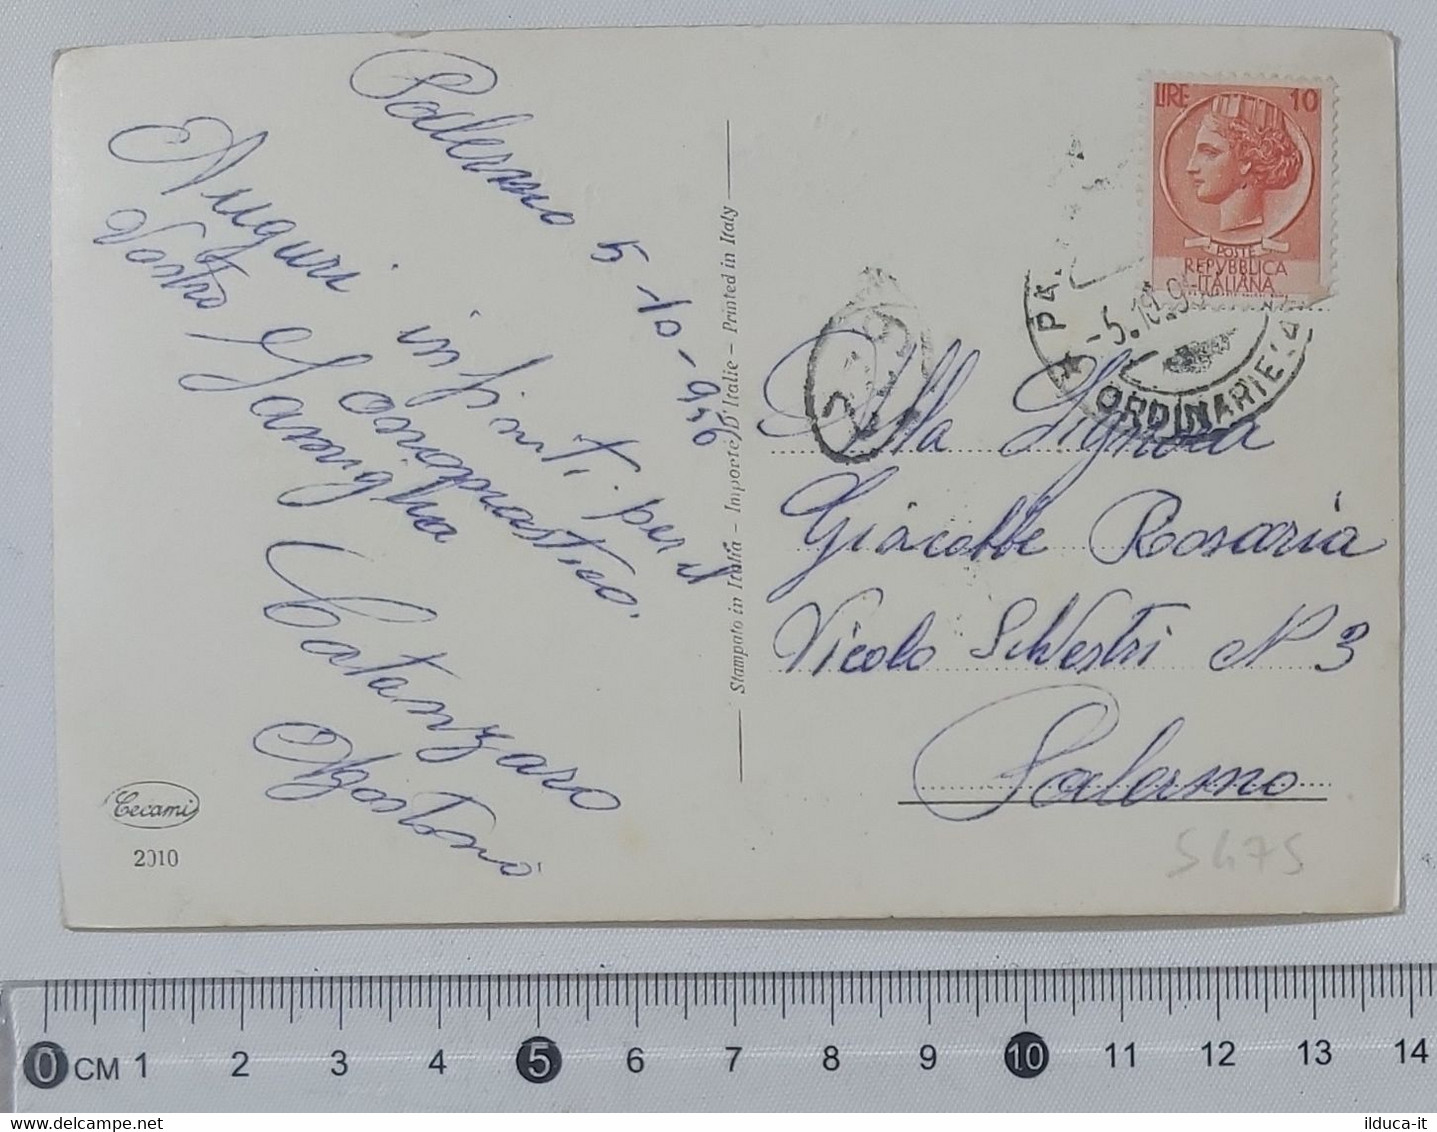 Palermo 5-10-956
Auguri infiniti per il
Vostro Onomastico.
Famiglia
Catanzaro
Agostino
Cecami
2010
Stampato in Italia – Importé d'Italie – Printed in Italy
LIRE 10
POSTE
REPVBBLICA
ITALIANA
PA
-5.10.9
ORDINARIE
Alla Signora
Giacobbe Rosaria
Vicolo Silvestri N 3
Palermo
5475
0 CM 1 2 3 4 5 6 7 8 9 10 11 12 13 14
ilduca-it